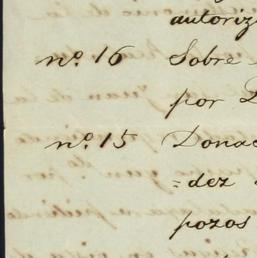 autoriz
nº. 16 Sobre
por D
nº. 15 Donac
=dez
pozos